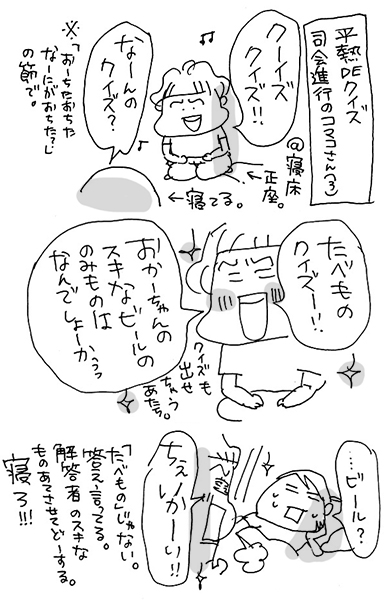 平熱DEクイズ
司会進行のコマコさん(3)
@寝床
クーイズ
クイズ!!
←正座。
なーんの
クイズ?
←寝てる。
※「おーちたおちた
なーにがおちた?」
の節で。
たべもの
クイズー!!
おかーちゃんの
スキなビールの
のみものは
なんでしょーかっっ
クイズも
出せ
ちゃう
あたち。
……ビール?
ちぇーいかーい!!
「たべもの」じゃない。
答え言ってる。
解答者のスキな
ものあてさせてどーする。
寝ろ!!!